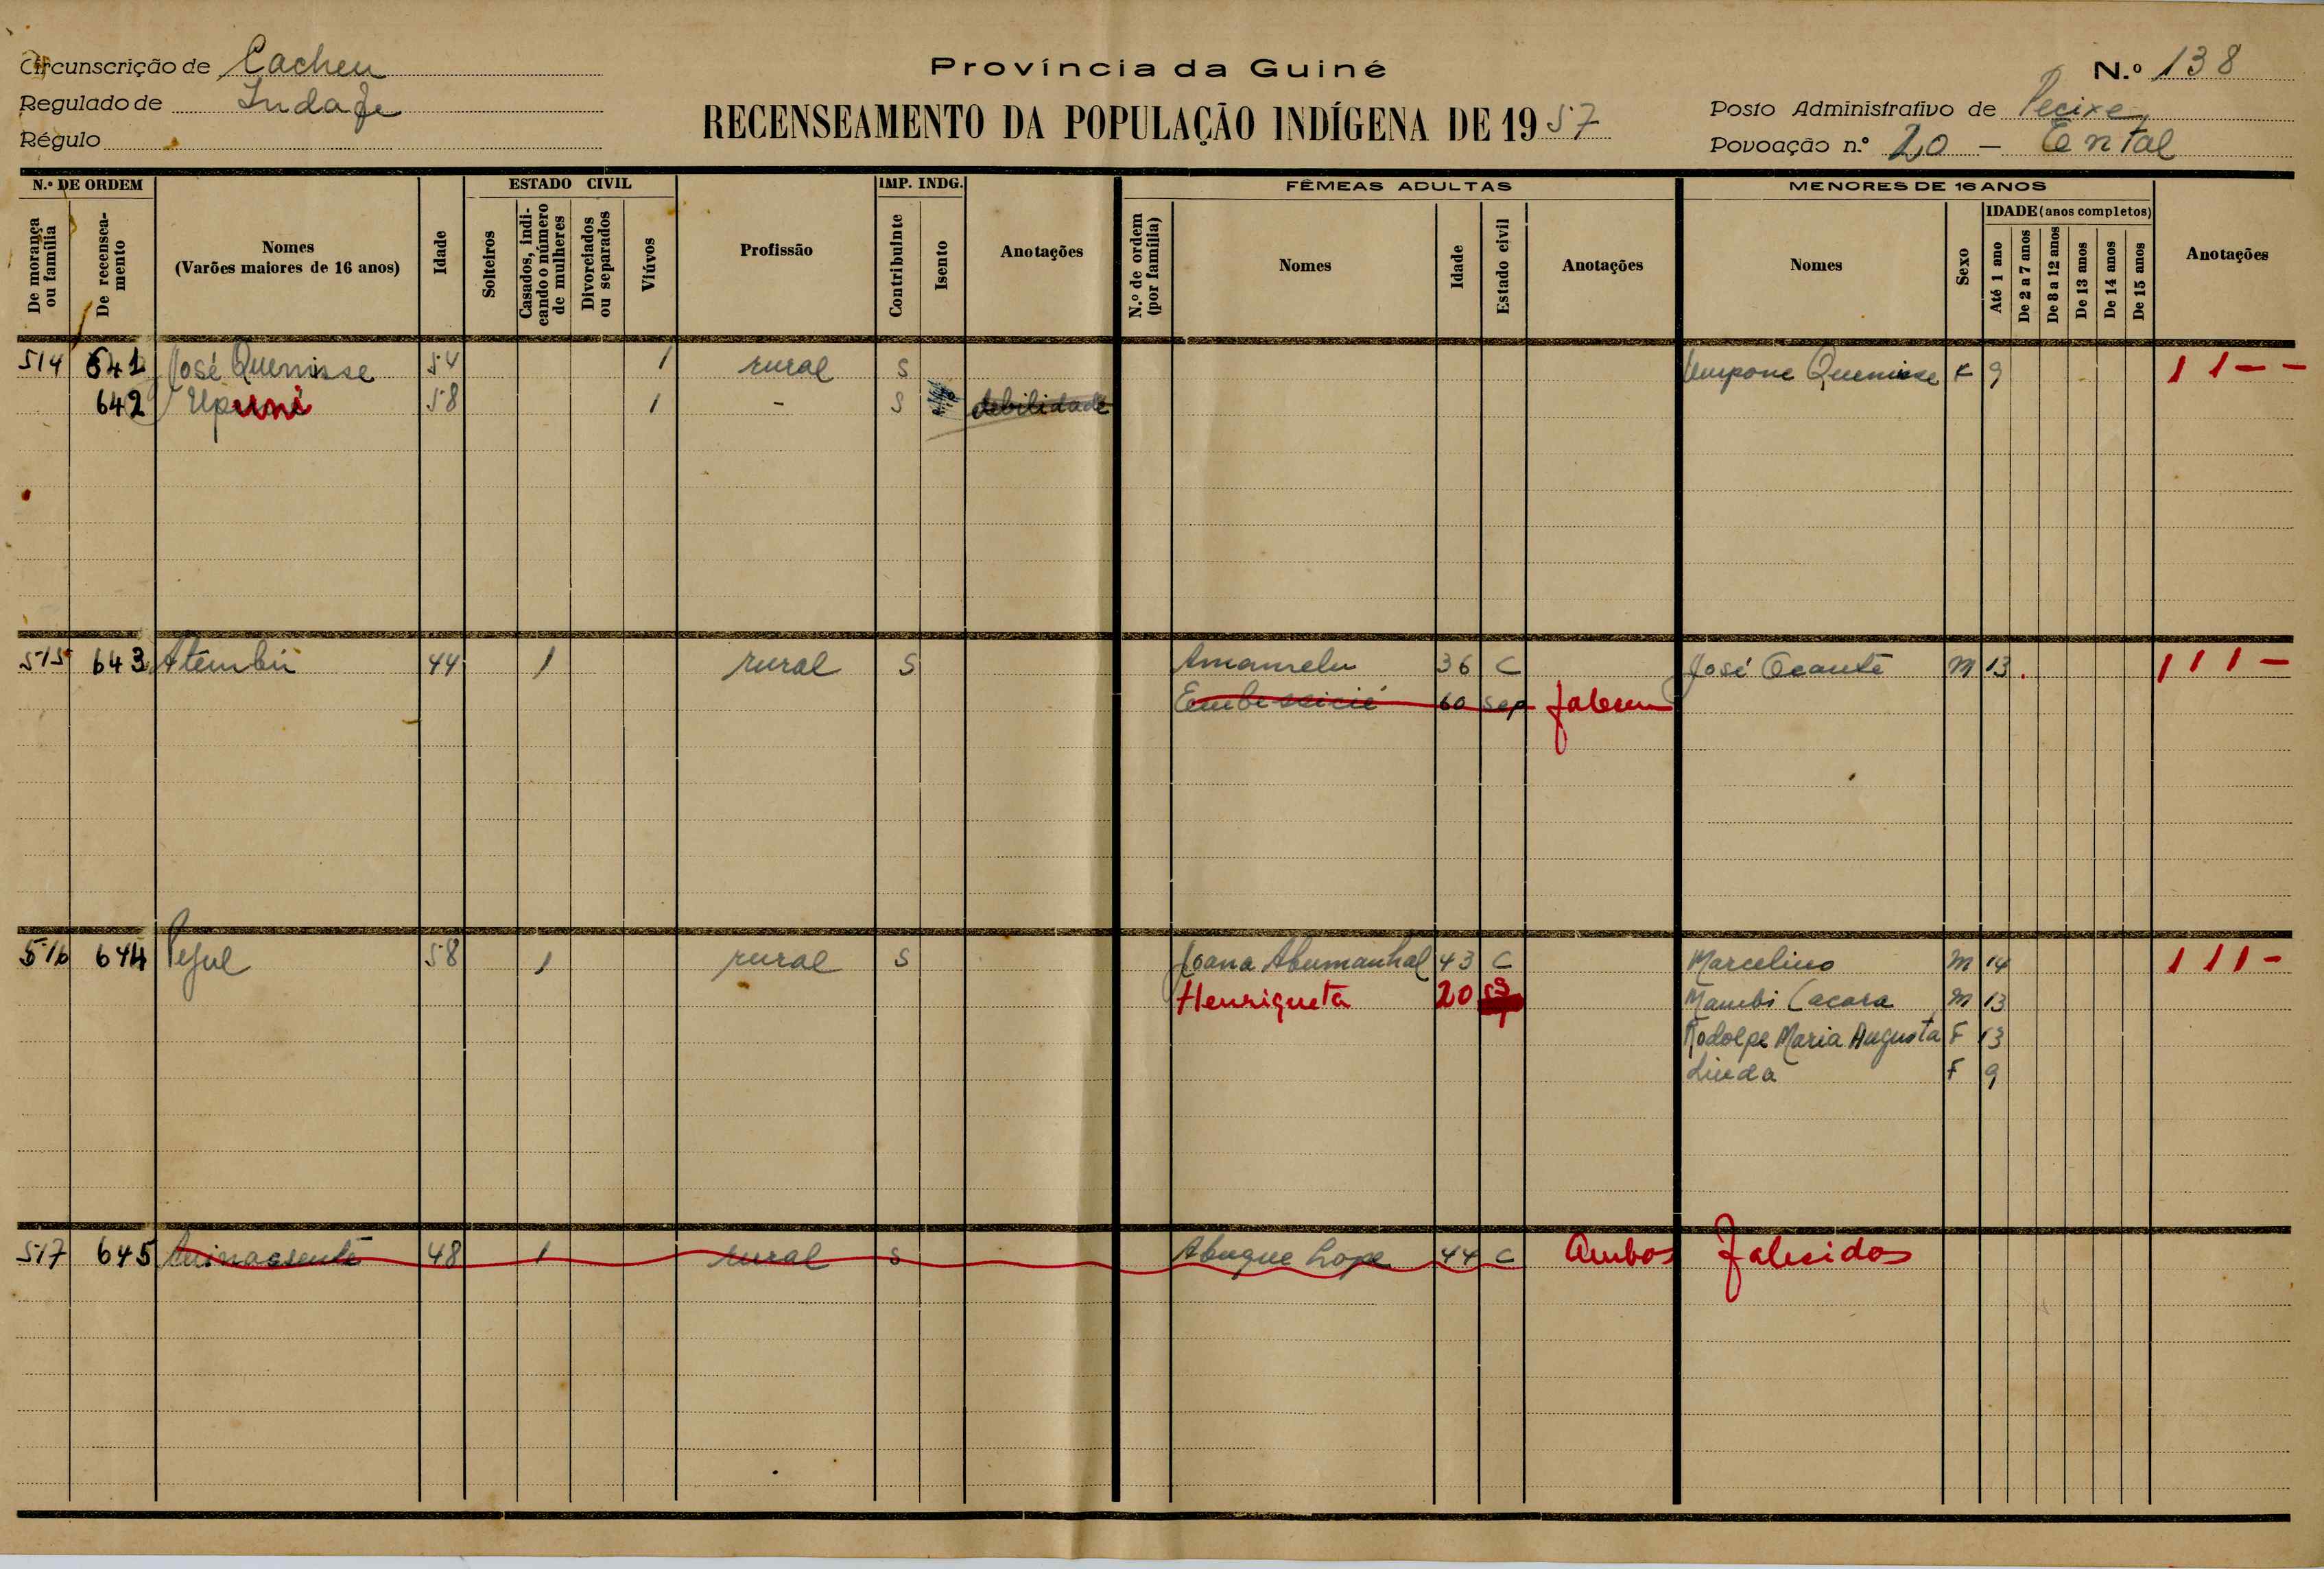 Circunscrição de Cacheu
Regulado de Indafe
Régulo
Província da Guiné
RECENSEAMENTO DA POPULAÇÃO INDÍGENA DE 1957
N.º 138
Posto Administrativo de Pecixe
Povoação n.º 20 — Ental
N.º DE ORDEM
De morança ou família
De recenseamento
Nomes
(Varões maiores de 16 anos)
Idade
ESTADO CIVIL
Solteiros
Casados, indicando o número de mulheres
Divorciados ou separados
Viúvos
Profissão
IMP. INDG.
Contribuinte
Isento
Anotações
FÊMEAS ADULTAS
N.º de ordem (por família)
Nomes
Idade
Estado civil
Anotações
MENORES DE 16 ANOS
Nomes
Sexo
IDADE (anos completos)
Até 1 ano
De 2 a 7 anos
De 8 a 12 anos
De 13 anos
De 14 anos
De 15 anos
Anotações
514 641 José Quenisse 54 1 rural S Umpone Quenisse F 9 1 1 - -
642 Upuni 58 1 - S debilidade
515 643 Atembú 44 1 rural S Amamelu 36 C José Ocante M 13 1 1 1 -
60 sep
516 644 58 1 rural S Joana Abumanhal 43 C Marcelino M 14 1 1 1 -
Henriqueta 20 Mambi Cacara M 13
Rodolpe Maria Augusta F 13
Linda F 9
517 645 48 1 rural S Abuque Lope 44 C Ambos Falecidos